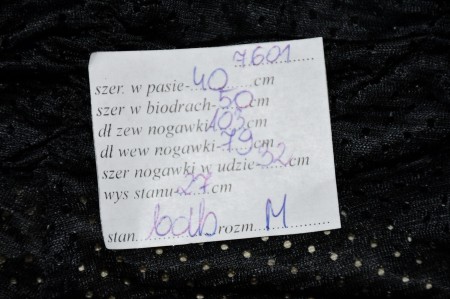 7601
szer. w pasie-40cm
szer w biodrach-50cm
dł zew nogawki-103cm
dl wew nogawki-79cm
szer nogawki w udzie-32cm
wys stanu-27cm
stan bdb rozm M